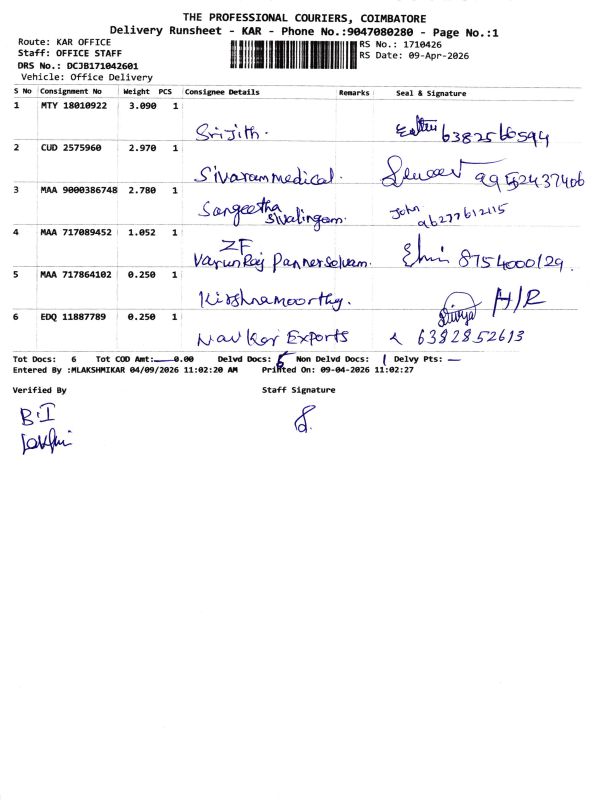 THE PROFESSIONAL COURIERS, COIMBATORE
Delivery Runsheet - KAR - Phone No.:9047080280 - Page No.:1
Route: KAR OFFICE
Staff: OFFICE STAFF
DRS No.: DCJB171042601
Vehicle: Office Delivery
RS No.: 1710426
RS Date: 09-Apr-2026
S No Consignment No Weight PCS Consignee Details Remarks Seal & Signature
1 MTY 18010922 3.090 1
Srijith.
2 CUD 2575960 2.970 1
Sivaram medical. 9952437406
3 MAA 9000386748 2.780 1
Sangeetha Sivalingam. John
4 MAA 717089452 1.052 1
ZF
Varunraj Pannerselvam. 8754000129.
5 MAA 717864102 0.250 1
Kirshnamoorthy. Divya H/R
6 EDQ 11887789 0.250 1
Navkar Exports 6382852613
Tot Docs: 6 Tot COD Amt: 0.00 Delvd Docs: 5 Non Delvd Docs: 1 Delvy Pts: —
Entered By :MLAKSHMIKAR 04/09/2026 11:02:20 AM Printed On: 09-04-2026 11:02:27
Verified By Staff Signature
B.I